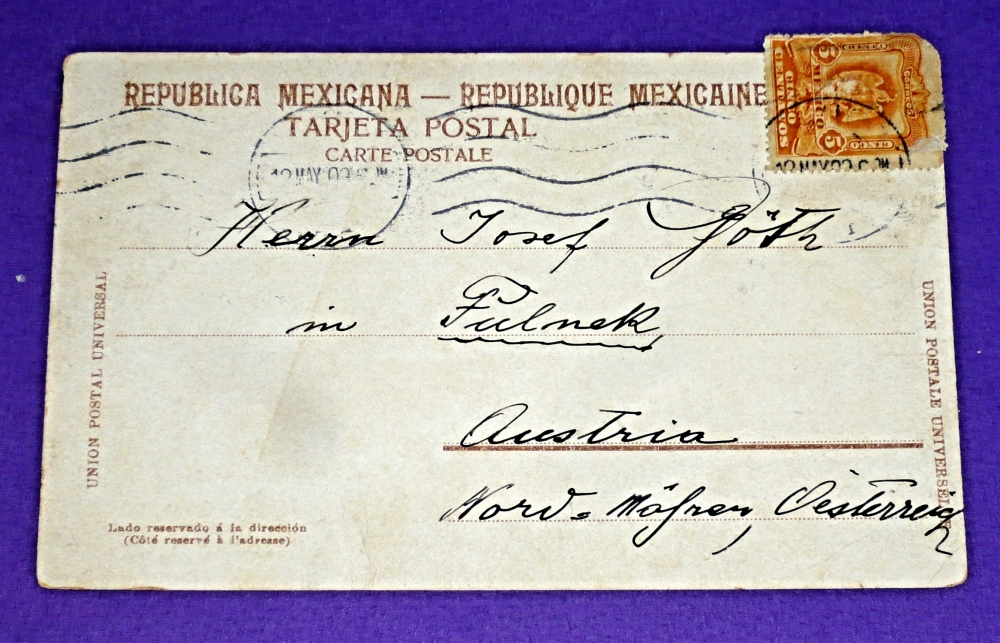 REPUBLICA MEXICANA — REPUBLIQUE MEXICAINE
TARJETA POSTAL
CARTE POSTALE
CORREOS
CINCO
5 MEXICO 5
CINCO
CENTAVOS
CINCO
Herrn Josef Göth
in Fulnek
Austria
Nord=Mähren, Oesterreich
UNION POSTAL UNIVERSAL
UNION POSTALE UNIVERSELLE
Lado reservado á la dirección
(Côté reservé à l'adresse)